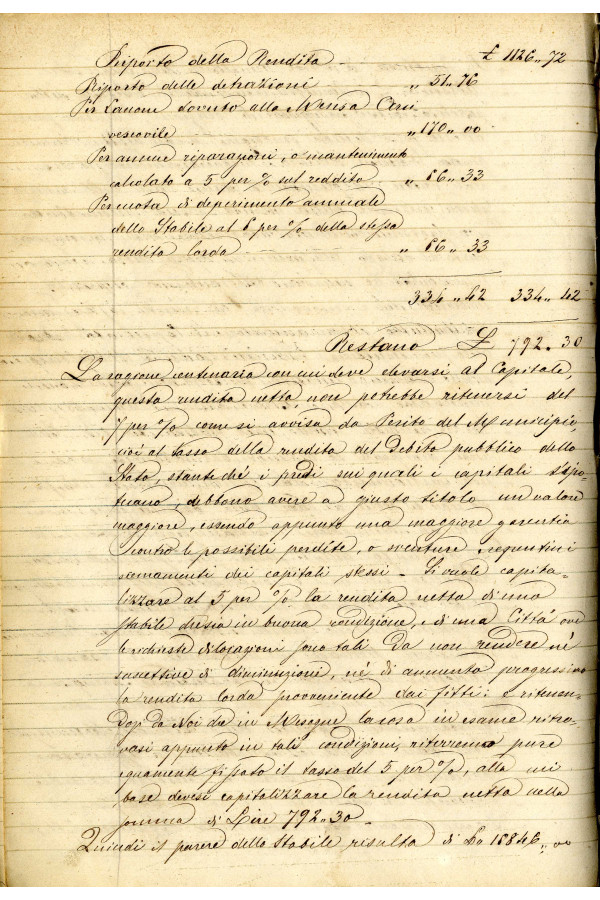 Riporto della Rendita £ 1126 „ 72
Riporto delle detrazioni „ 31 „ 76
Per Canone dovuto alla Mensa Arci
vescovile „ 170 „ 00
Per annue riparazioni, o mantenimento
calcolato a 5 per % sul reddito „ 66 „ 33
Per quota di deperimento annuale
dello Stabile al 6 per % della stessa
rendita lorda „ 66 „ 33
334 „ 42 334 „ 42
Restano £ 792 . 30
La ragione centenaria con cui deve elevarsi al Capitale,
questa rendita netta non potrebbe ritenersi del
7 per % come si avvisa da Perito del Municipio,
cioè al tasso della rendita del Debito pubblico dello
Stato, stante ché i fondi sui quali i capitali s'ipo-
tecano, debbono avere a giusto titolo un valore
maggiore, essendo appunto una maggiore garentia
contro le possibili perdite, o sventure
dei capitali stessi - Si vuole capita-
lizzare al 5 per % la rendita netta di uno
stabile che sia in buona condizione, e di una Città ove
le richieste di locazioni sono tali da non rendere né
suscettive di diminuzione, né di aumento progressivo
la rendita lorda proveniente dai fitti: e ritenen-
dosi da Noi che in Mesagne la cosa in esame ritro-
vasi appunto in tali condizioni, riterremo pure
equamente fissato il tasso del 5 per %, alla cui
base devesi capitalizzare la rendita netta nella
somma di Lire 792 . 30 -
Quindi il parere dello Stabile risulta di L. 15846 „ 00